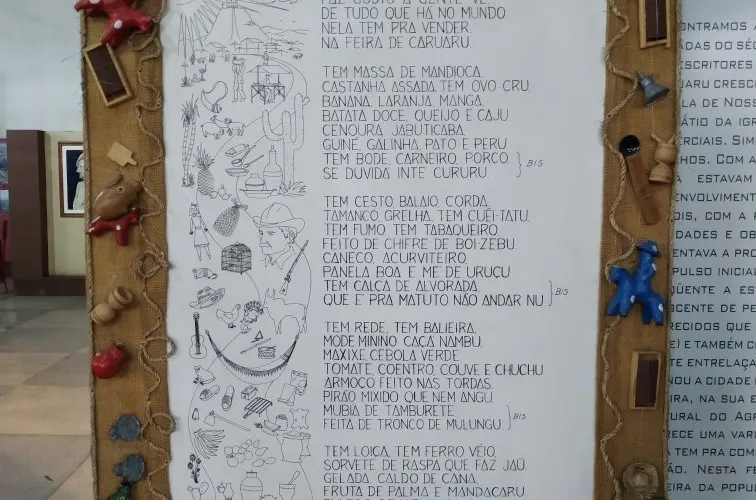 FAZ GOSTO A GENTE VÊ.
DE TUDO QUE HÁ NO MUNDO
NELA TEM PRA VENDER,
NA FEIRA DE CARUARU.
TEM MASSA DE MANDIOCA,
CASTANHA ASSADA, TEM OVO CRU,
BANANA, LARANJA, MANGA,
BATATA DOCE, QUEIJO E CAJU
CENOURA, JABUTICABA,
GUINÉ, GALINHA, PATO E PERU
TEM BODE, CARNEIRO, PORCO,
SE DUVIDÁ INTÉ CURURU
BIS
TEM CESTO, BALAIO, CORDA,
TAMANCO, GRELHA, TEM CUÊI-TATU,
TEM FUMO, TEM TABAQUEIRO
FEITO DE CHIFRE DE BOI-ZEBU
CANECO, ACURVITEIRO,
PANELA BOA E MÉ DE URUÇU
TEM CALÇA DE ALVORADA,
QUE É PRA MATUTO NÃO ANDAR NU.
BIS
TEM REDE, TEM BALIEIRA,
MODE MININO CAÇÁ NAMBU,
MAXIXE, CEBOLA VERDE
TOMATE, COENTRO, COUVE E CHUCHU
ARMOÇO FEITO NAS TORDAS,
PIRÃO MIXIDO QUE NEM ANGU,
MUBIA DE TAMBURETE
FEITA DE TRONCO DE MULUNGU.
BIS
TEM LOIÇA, TEM FERRO VÉIO,
SORVETE DE RASPA QUE FAZ JAÚ,
GELADA, CALDO DE CANA,
FRUTA DE PALMA E MANDACARU
ESCRITORES
DE NOSS
COM A
ESTAVAM
COM A
DADES E
A PRO
PULSO INICIAL
A ES
DE
QUE
E TAMBÉM
A CIDADE
NA SUA
DO
UMA
TEM PRA
NESTA
DA